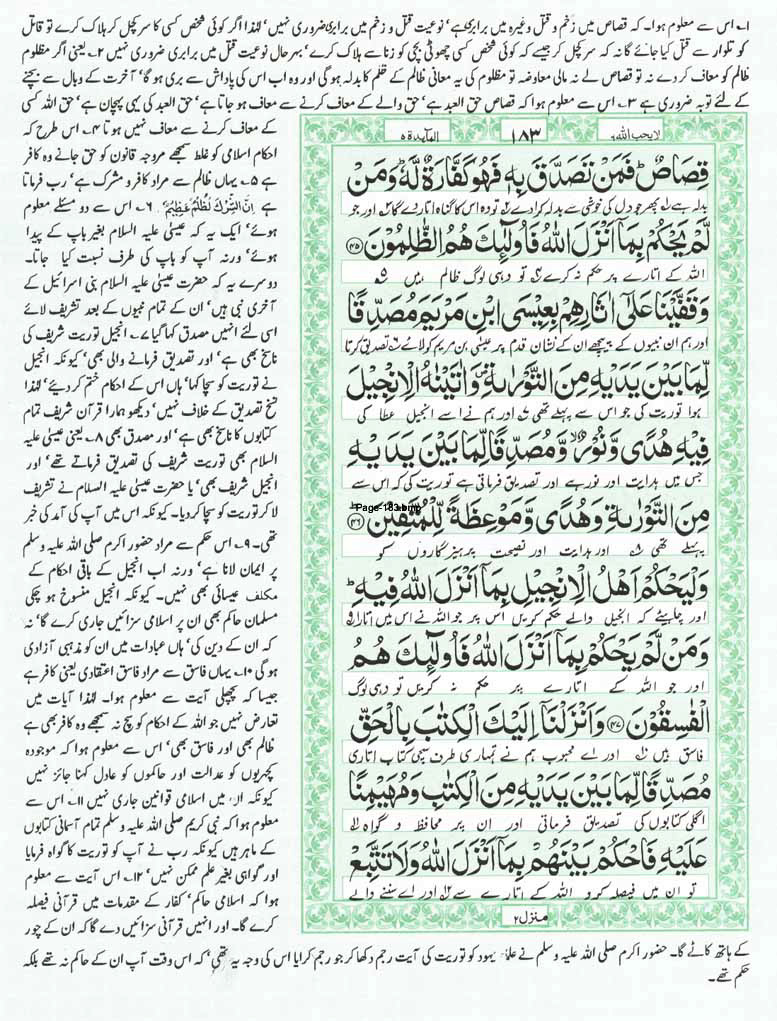 ۱؎ اس سے معلوم ہوا۔ کہ قصاص میں زخم و قتل وغیرہ میں برابری ہے، نوعیت قتل و زخم میں برابری ضروری نہیں، لہٰذا اگر کوئی شخص کسی کا سر کچل کر ہلاک کرے تو قاتل
کو تلوار سے قتل کیا جائے گا نہ کہ سر کچل کر جیسے کہ کوئی شخص کسی چھوٹی بچی کو زنا سے ہلاک کرے، بہرحال نوعیت قتل میں برابری ضروری نہیں ۲؎ یعنی اگر مظلوم
ظالم کو معاف کر دے نہ تو قصاص لے نہ مالی معاوضہ تو مظلوم کی یہ معافی ظالم کے ظلم کا بدلہ ہوگی اور وہ اب اس کی پاداش سے بری ہوگا، آخرت کے وبال سے بچنے
کے لئے توبہ ضروری ہے ۳؎ اس سے معلوم ہوا کہ قصاص حق العبد ہے، حق والے کے معاف کرنے سے معاف ہو جاتا ہے، حق العبد کی یہی پہچان ہے، حق اللہ کسی
کے معاف کرنے سے معاف نہیں ہوتا ۴؎ اس طرح کہ
احکام اسلامی کو غلط سمجھے مروجہ قانون کو حق جانے وہ کافر
ہے ۵؎ یہاں ظالم سے مراد کافر و مشرک ہے، رب فرماتا
ہے اِنَّ الشِّرْكَ لَظُلْمٌ عَظِيْمٌ ۶؎ اس سے دو مسئلے معلوم
ہوئے، ایک یہ کہ عیسیٰ علیہ السلام بغیر باپ کے پیدا
ہوئے، ورنہ آپ کو باپ کی طرف نسبت کیا جاتا۔
دوسرے یہ کہ حضرت عیسیٰ علیہ السلام بنی اسرائیل کے
آخری نبی ہیں، ان کے تمام نبیوں کے بعد تشریف لائے
اسی لئے انہیں مصدق کہا گیا ۷؎ انجیل توریت شریف کی
ناسخ بھی ہے، اور تصدیق فرمانے والی بھی، کیونکہ انجیل
نے توریت کو سچا کہا، ہاں اس کے احکام ختم کر دیئے، لہٰذا
نسخ تصدیق کے خلاف نہیں، دیکھو ہمارا قرآن شریف تمام
کتابوں کا ناسخ بھی ہے، اور مصدق بھی ۸؎ یعنی عیسیٰ علیہ
السلام بھی توریت شریف کی تصدیق فرماتے تھے، اور
انجیل شریف بھی، یا حضرت عیسیٰ علیہ السلام نے تشریف
لا کر توریت کو سچا کر دیا۔ کیونکہ اس میں آپ کی آمد کی خبر
تھی۔ ۹؎ اس حکم سے مراد حضور اکرم صلی اللہ علیہ وسلم
پر ایمان لانا ہے، ورنہ اب انجیل کے باقی احکام کے
مکلف عیسائی بھی نہیں۔ کیونکہ انجیل منسوخ ہو چکی
مسلمان حاکم بھی ان پر اسلامی سزائیں جاری کرے گا، نہ
کہ ان کے دین کی، ہاں عبادات میں ان کو مذہبی آزادی
ہوگی ۱۰؎ یہاں فاسق سے مراد فاسق اعتقادی یعنی کافر ہے
جیسا کہ پچھلی آیت سے معلوم ہوا۔ لہٰذا آیات میں
تعارض نہیں جو اللہ کے احکام کو سچ نہ سمجھے وہ کافر بھی ہے
ظالم بھی اور فاسق بھی، اس سے معلوم ہوا کہ موجودہ
کچہریوں کو عدالت اور حاکموں کو عادل کہنا جائز نہیں
کیونکہ ان میں اسلامی قوانین جاری نہیں ۱۱؎ اس سے
معلوم ہوا کہ نبی کریم صلی اللہ علیہ وسلم تمام آسمانی کتابوں
کے ماہر ہیں کیونکہ رب نے آپ کو توریت کا گواہ فرمایا
اور گواہی بغیر علم ممکن نہیں، ۱۲؎ اس آیت سے معلوم
ہوا کہ اسلامی حاکم، کفار کے مقدمات میں قرآنی فیصلہ
کرے گا۔ اور انہیں قرآنی سزائیں دے گا کہ ان کے چور
لا یحب اللہ ۶
۱۸۳
المآئدۃ ۵
قِصَاصٌ ؕ فَمَنْ تَصَدَّقَ بِهٖ فَهُوَ كَفَّارَةٌ لَّهٗ ؕ وَمَنْ
بدلہ ہے ۱؎ پھر جو دل کی خوشی سے بدلہ کرادے ۲؎ تو وہ اس کا گناہ اتار دے گا ۳؎ اور جو
لَّمْ يَحْكُمْ بِمَاۤ اَنْزَلَ اللّٰهُ فَاُولٰٓئِكَ هُمُ الظّٰلِمُوْنَ ﴿۴۵﴾
اللہ کے اتارے پر حکم نہ کرے ۴؎ تو وہی لوگ ظالم ہیں ۵؎
وَقَفَّيْنَا عَلٰۤى اٰثَارِهِمْ بِعِيْسَى ابْنِ مَرْيَمَ مُصَدِّقًا
اور ہم ان نبیوں کے پیچھے ان کے نشان قدم پر عیسٰی بن مریم کو لائے ۶؎ تصدیق کرتا
لِّمَا بَيْنَ يَدَيْهِ مِنَ التَّوْرٰىةِ ۪ وَاٰتَيْنٰهُ الْاِنْجِيْلَ
ہوا توریت کی جو اس سے پہلے تھی ۷؎ اور ہم نے اسے انجیل عطا کی
فِيْهِ هُدًى وَّنُوْرٌ ۙ وَّمُصَدِّقًا لِّمَا بَيْنَ يَدَيْهِ
جس میں ہدایت اور نور ہے اور تصدیق فرماتی ہے توریت کی کہ اس سے
مِنَ التَّوْرٰىةِ وَهُدًى وَّمَوْعِظَةً لِّلْمُتَّقِيْنَ ﴿۴۶﴾
Page-183.bmp
پہلے تھی ۸؎ اور ہدایت اور نصیحت پرہیزگاروں کو
وَلْيَحْكُمْ اَهْلُ الْاِنْجِيْلِ بِمَاۤ اَنْزَلَ اللّٰهُ فِيْهِ ؕ
اور چاہیئے کہ انجیل والے حکم کریں اس پر جو اللہ نے اس میں اتارا ۹؎
وَمَنْ لَّمْ يَحْكُمْ بِمَاۤ اَنْزَلَ اللّٰهُ فَاُولٰٓئِكَ هُمُ
اور جو اللہ کے اتارے پر حکم نہ کریں تو وہی لوگ
الْفٰسِقُوْنَ ﴿۴۷﴾ وَاَنْزَلْنَاۤ اِلَيْكَ الْكِتٰبَ بِالْحَقِّ
فاسق ہیں ۱۰؎ اور اے محبوب ہم نے تمہاری طرف سچی کتاب اتاری
مُصَدِّقًا لِّمَا بَيْنَ يَدَيْهِ مِنَ الْكِتٰبِ وَمُهَيْمِنًا
اگلی کتابوں کی تصدیق فرماتی اور ان پر محافظ و گواہ ۱۱؎
عَلَيْهِ فَاحْكُمْ بَيْنَهُمْ بِمَاۤ اَنْزَلَ اللّٰهُ وَلَا تَتَّبِعْ
تو ان میں فیصلہ کرو اللہ کے اتارے سے ۱۲؎ اور اے سننے والے
منزل ۲
کے ہاتھ کاٹے گا۔ حضور اکرم صلی اللہ علیہ وسلم نے علماء یہود کو توریت کی آیت رجم دکھا کر جو رجم کرایا اس کی وجہ یہ تھی، کہ اس وقت آپ ان کے حاکم نہ تھے بلکہ
حکم تھے۔